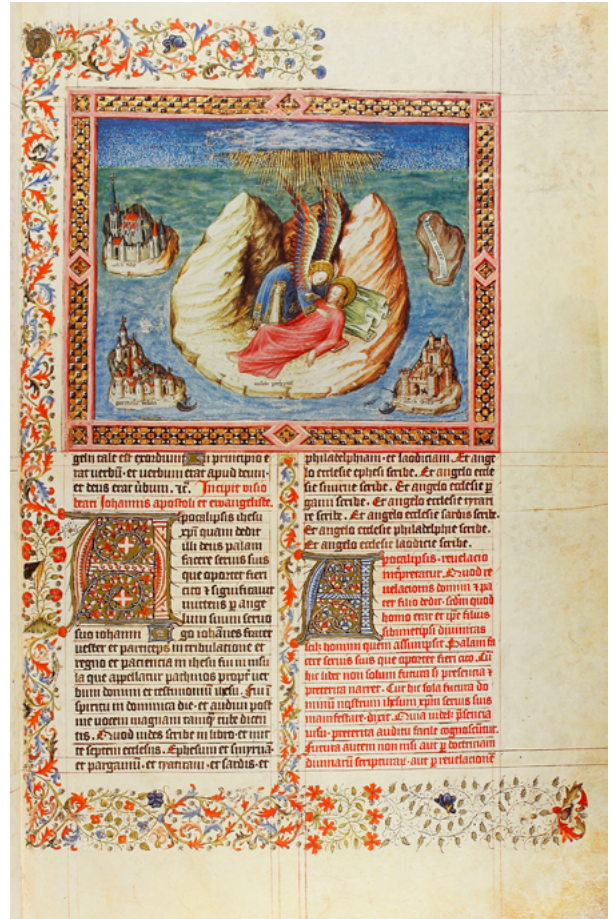 gelii tale est exordium In principio e
rat verbū. et uerbum erat apud deum.
et deus erat ūbum. ⁊c̄. Incipit visio
beati Iohannis apostoli et ewangeliste.
Apocalipsis ihesu
xp̄i quam dedit
illi deus palam
facere seruis suis
que oportet fieri
cito ⁊ significauit
mittens p ange
lum suum seruo
suo iohanni Ego iohānes frater
uester et particeps in tribulatione et
regno et paciencia in ihesu fui in insu
la que appellatur pathmos propt̄ ver
bum domini et testimoniū ihesu. Fui ī
spiritu in dominica die. et audiui post
me uocem magnam tamq̄ tube dicen
tis. Quod uides scribe in libro. et mit
te septem ecclesiis. Ephesum et smyrnā
et pargamū. et tyatiram. et sardis. et
philadelphiam. et laodiciam. Et ange
lo ecclesie ephesi scribe. Et angelo eccle
sie smirne scribe. Et angelo ecclesie p
gami scribe. Et angelo ecclesie tyrati
re scribe. Et angelo ecclesie sardis scribe.
Et angelo ecclesie philadelphie scribe.
Et angelo ecclesie laodicie scribe.
Apocalipsis. reuelacio
interpretatur. Quod re
uelacionis domini a pa
tre filio dedit. scdm quod
homo erat et ip̄e filius
sibimetipsi diuinitas
scilz homini quem assumpsit. Palam fa
cere seruis suis que oportet fieri cito. Cū
hic liber non solum futura sz presencia ⁊
preterita narret. Cur hic sola futura do
minū nostrum ihesum xp̄m seruis suis
manifestare dixit. Quia uidelz p̄sencia
uisu. preterita auditu facile cognoscūtur.
Futura autem non nisi aut p doctrinam
diuinarū scripturarū. aut p reuelacionē